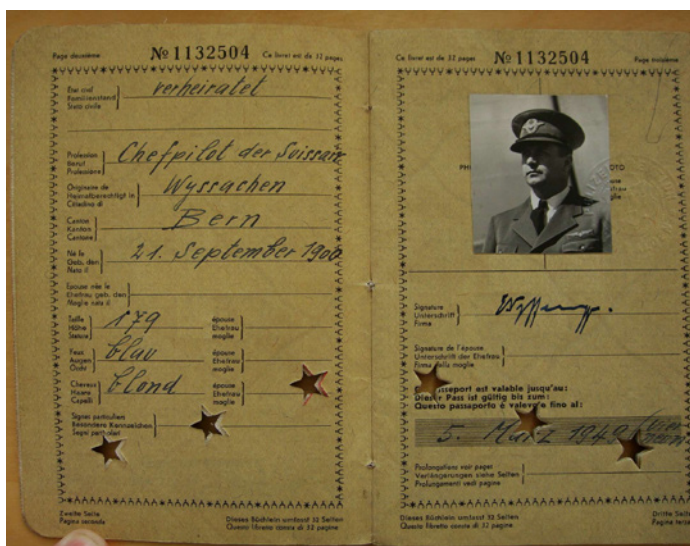 Page deuxième
№ 1132504
Ce livret est de 32 pages
Etat civil
Familienstand
Stato civile
verheiratet
Profession
Beruf
Professione
Chefpilot der Suissair
Originaire de
Heimatberechtigt in
Cittadino di
Wyssachen
Canton
Kanton
Cantone
Bern
Né le
Geb. den
Nato il
21. September 1906
Epouse née le
Ehefrau geb. den
Moglie nata il
Taille
Höhe
Statura
179
épouse
Ehefrau
moglie
Yeux
Augen
Occhi
blau
épouse
Ehefrau
moglie
Cheveux
Haare
Capelli
blond
épouse
Ehefrau
moglie
Signes particuliers
Besondere Kennzeichen
Segni particolari
Zweite Seite
Pagina seconda
Dieses Büchlein umfasst 32 Seiten
Questo libretto consta di 32 pagine
Ce livret est de 32 pages
№ 1132504
Page troisième
Signature
Unterschrift
Firma
Signature de l'épouse
Unterschrift der Ehefrau
Firma della moglie
passeport est valable jusqu'au:
Dieser Pass ist gültig bis zum:
Questo passaporto è valevole fino al:
5. März 1949
Prolongations voir pages
Verlängerungen siehe Seiten
Prolungamenti vedi pagine
Dieses Büchlein umfasst 32 Seiten
Questo libretto consta di 32 pagine
Dritte Seite
Pagina terza